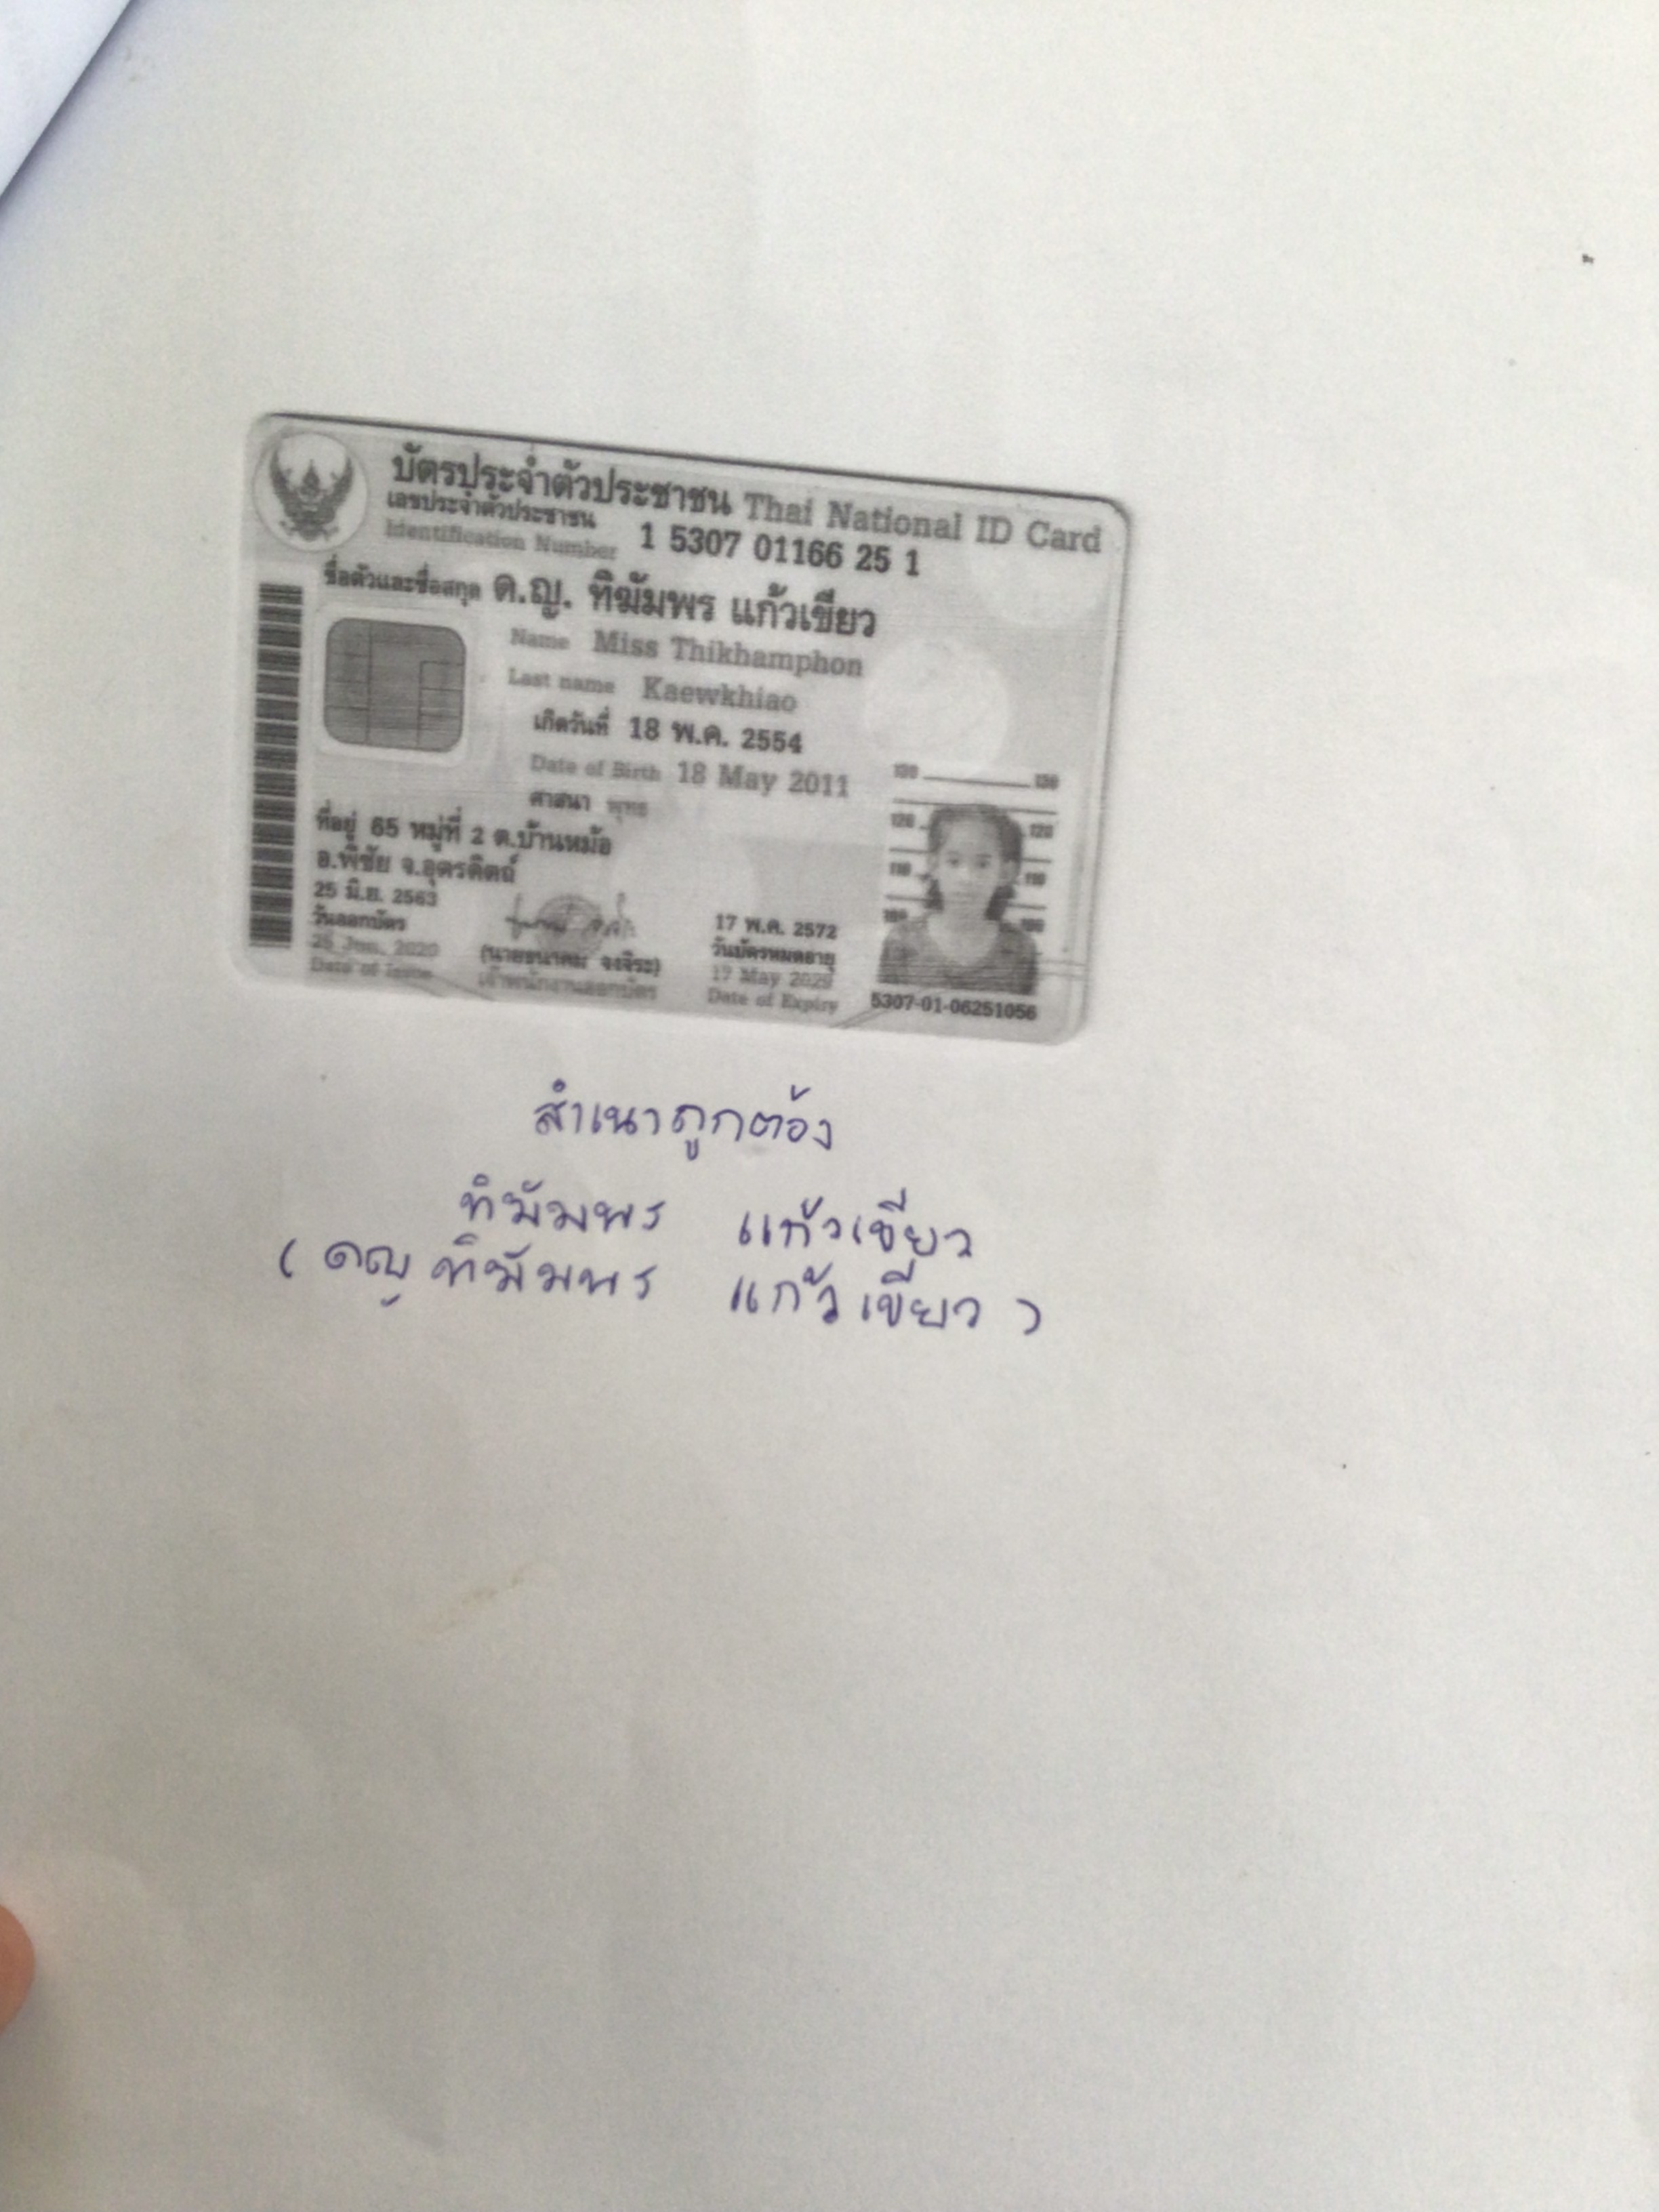 บัตรประจำตัวประชาชน Thai National ID Card
เลขประจำตัวประชาชน
Identification Number 1 5307 01166 25 1
ชื่อตัวและชื่อสกุล ด.ญ. ทิฆัมพร แก้วเขียว
Name Miss Thikhamphon
Last name Kaewkhiao
เกิดวันที่ 18 พ.ค. 2554
Date of Birth 18 May 2011
ศาสนา พุทธ
ที่อยู่ 65 หมู่ที่ 2 ต.บ้านหม้อ
อ.พิชัย จ.อุตรดิตถ์
25 มิ.ย. 2563
วันออกบัตร
25 Jun. 2020
Date of Issue
(นายธนาคม จงจิระ)
เจ้าพนักงานออกบัตร
17 พ.ค. 2572
วันบัตรหมดอายุ
17 May 2029
Date of Expiry
130 130
120 120
110 110
100 100
5307-01-06251056
สำเนาถูกต้อง
ทิฆัมพร แก้วเขียว
( ดญ ทิฆัมพร แก้วเขียว )